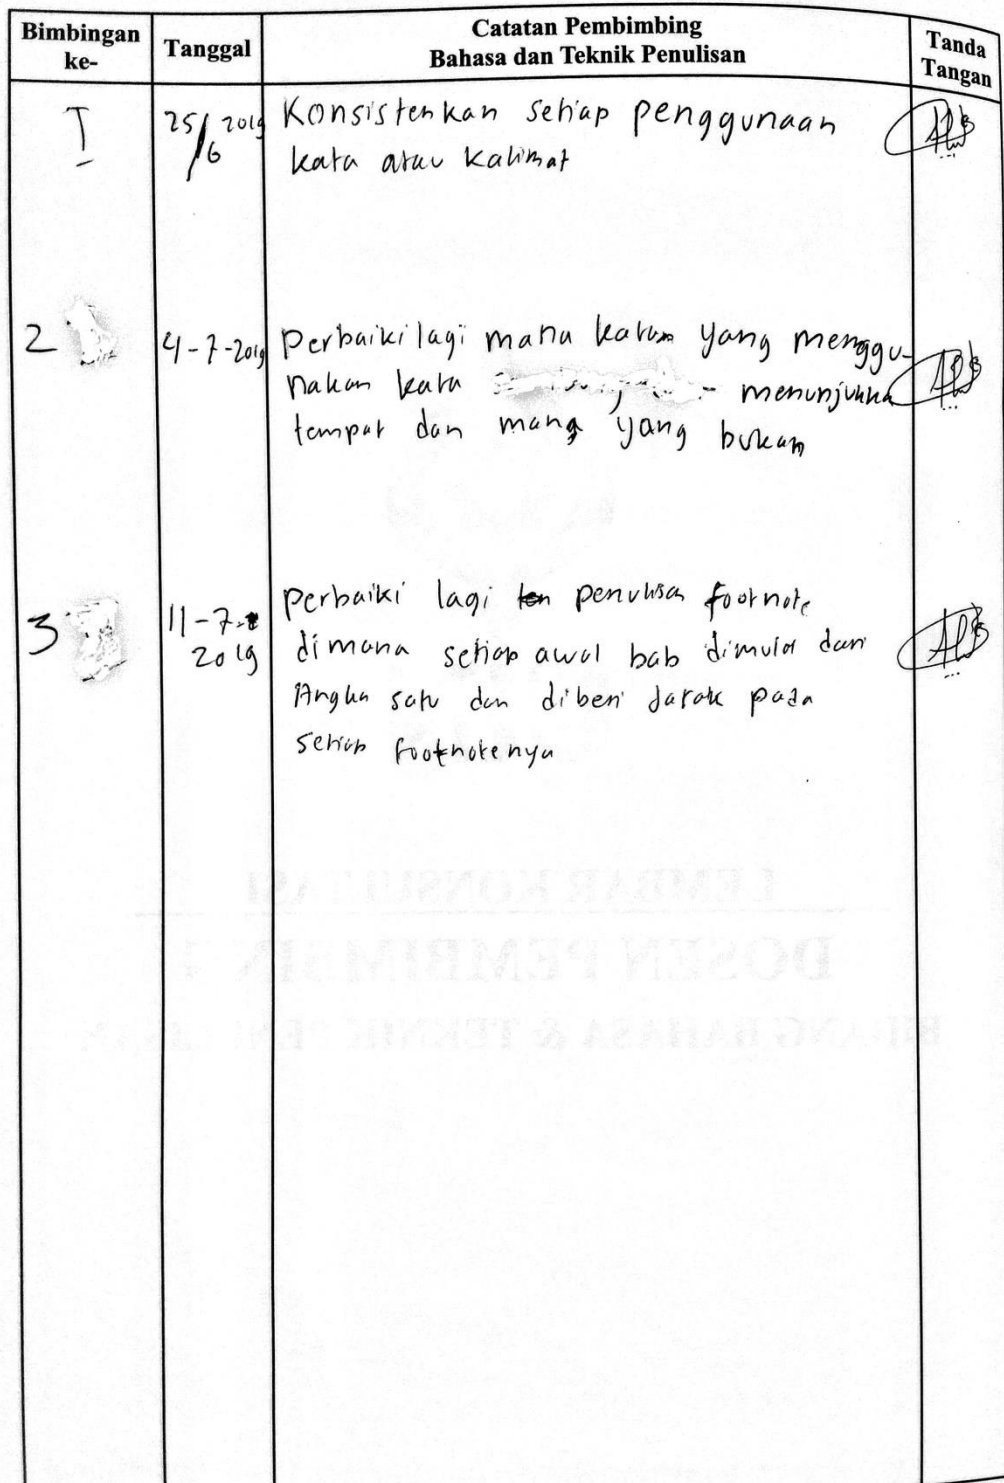 Bimbingan ke-
Tanggal
Catatan Pembimbing
Bahasa dan Teknik Penulisan
Tanda Tangan
I
25/6 2019
Konsistenkan setiap penggunaan
kata atau kalimat
2
4-7-2019
Perbaiki lagi mana yang menggu-
nakan kata menunjukka
tempat dan mana yang bukan
3
11-7-
2019
perbaiki lagi penulisa footnote
dimana setiap awal bab dimulai dari
Angka satu dan diberi Jarak pada
setiap footnotenya
LEMBAR KONSULTASI
DOSEN PEMBIMBIN
BAHASA & TEKNIK